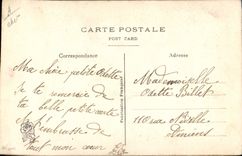 CARTE POSTALE
POST CARD
Correspondance
Adresse
Ma chère petite Odette
Je te remercie de
ta belle petite carte
Je t'embrasse de
tout mon cœur
Mademoiselle
Odette Billet
110 rue